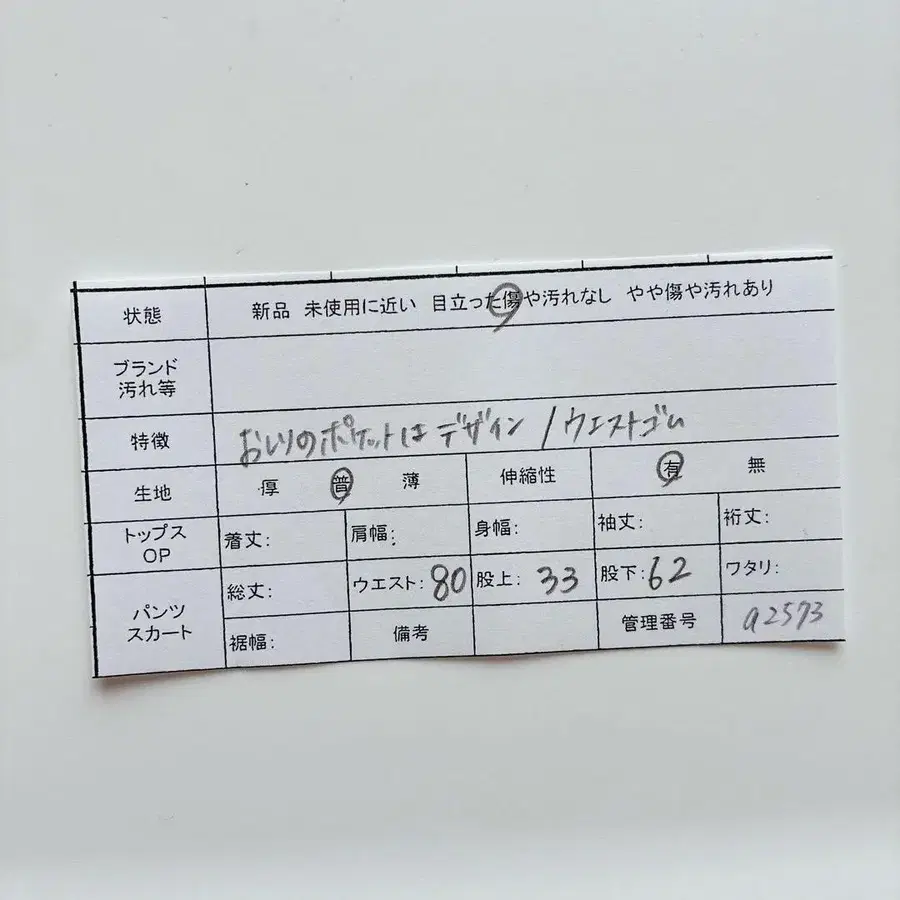 状態 新品 未使用に近い 目立った傷や汚れなし やや傷や汚れあり
ブランド
汚れ等
特徴 おしりのポケットはデザイン / ウエストゴム
生地 厚 普 薄 伸縮性 有 無
トップス
OP
着丈: 肩幅: 身幅: 袖丈: 裄丈:
パンツ
スカート
総丈: ウエスト: 80 股上: 33 股下: 62 ワタリ:
裾幅: 備考 管理番号 a2573